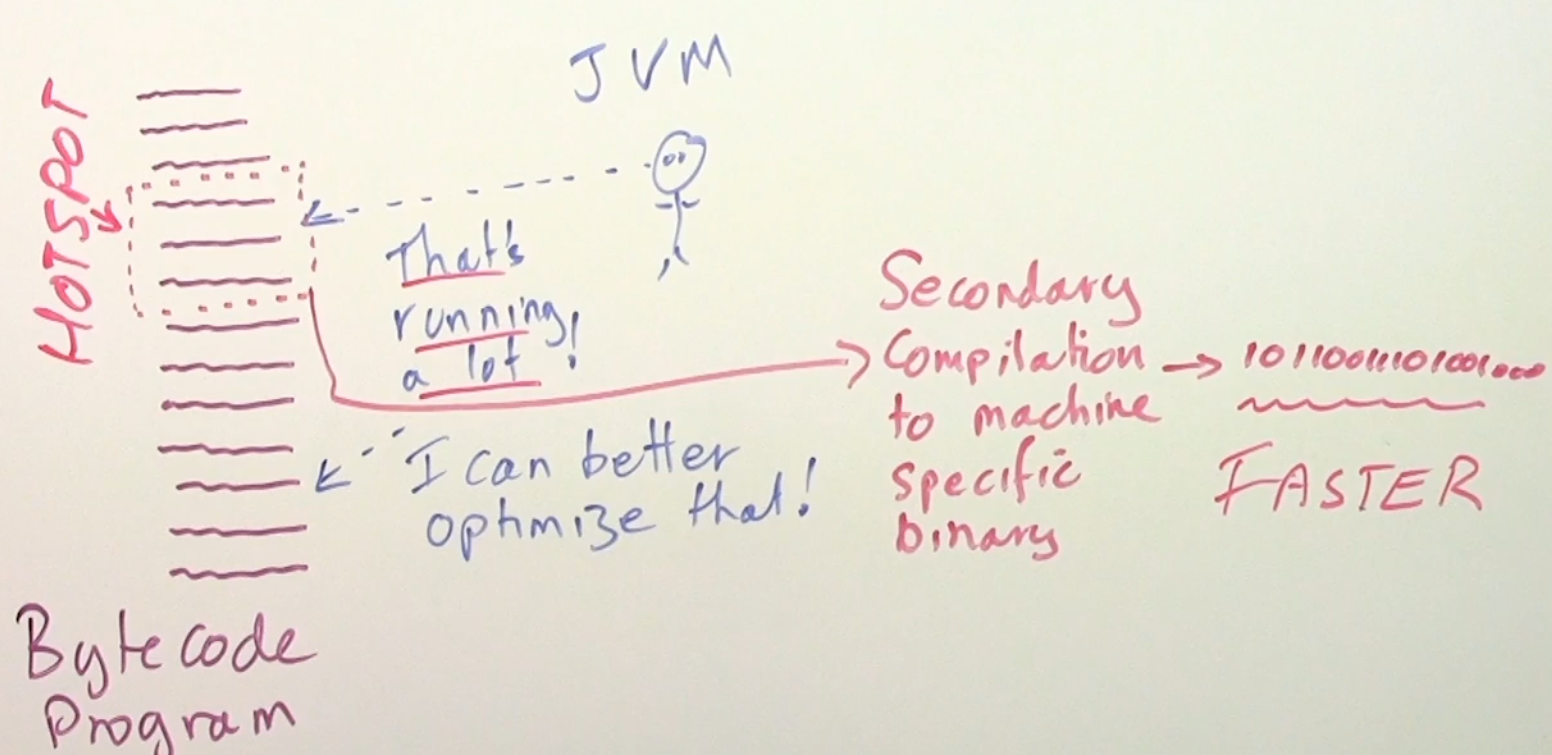 JVM
HOTSPOT
That's
running!
a lot
I can better
optimize that!
Secondary
Compilation
to machine
specific
binary
FASTER
Bytecode
Program